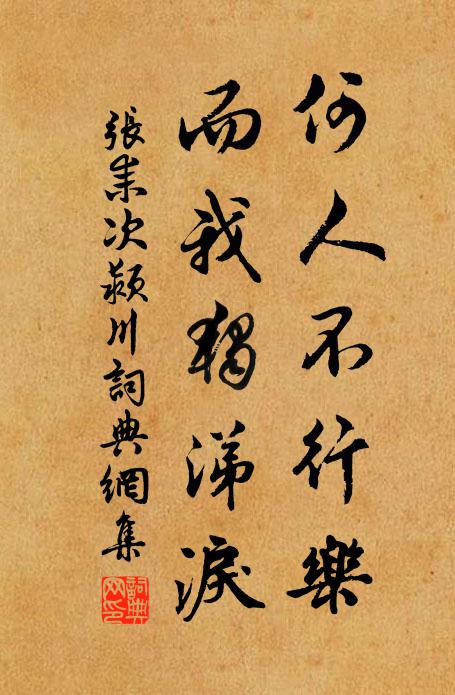 何人不行樂
而我獨涕淚
張耒次潁川詞典網集
詞典網印